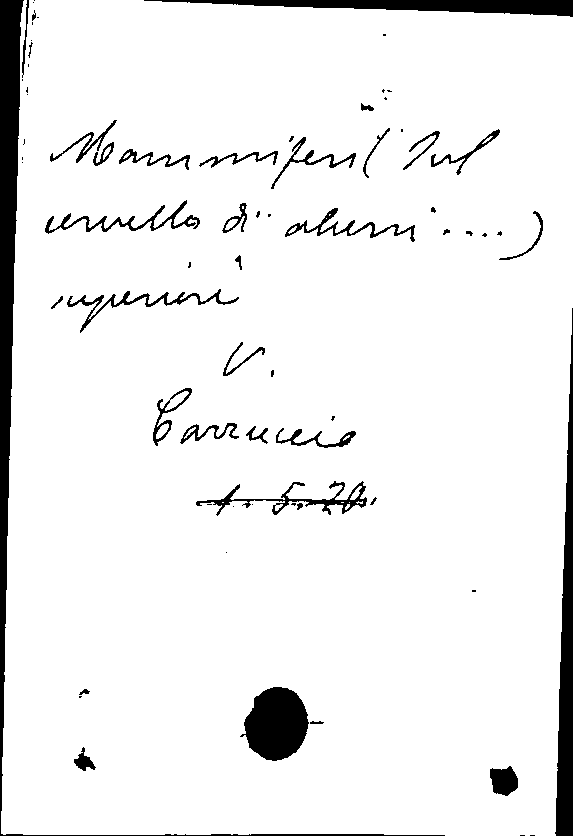 Mammiferi (Sul
cervello di alcuni ....)
superiori
V.
Carruccio
1. 5. 20.